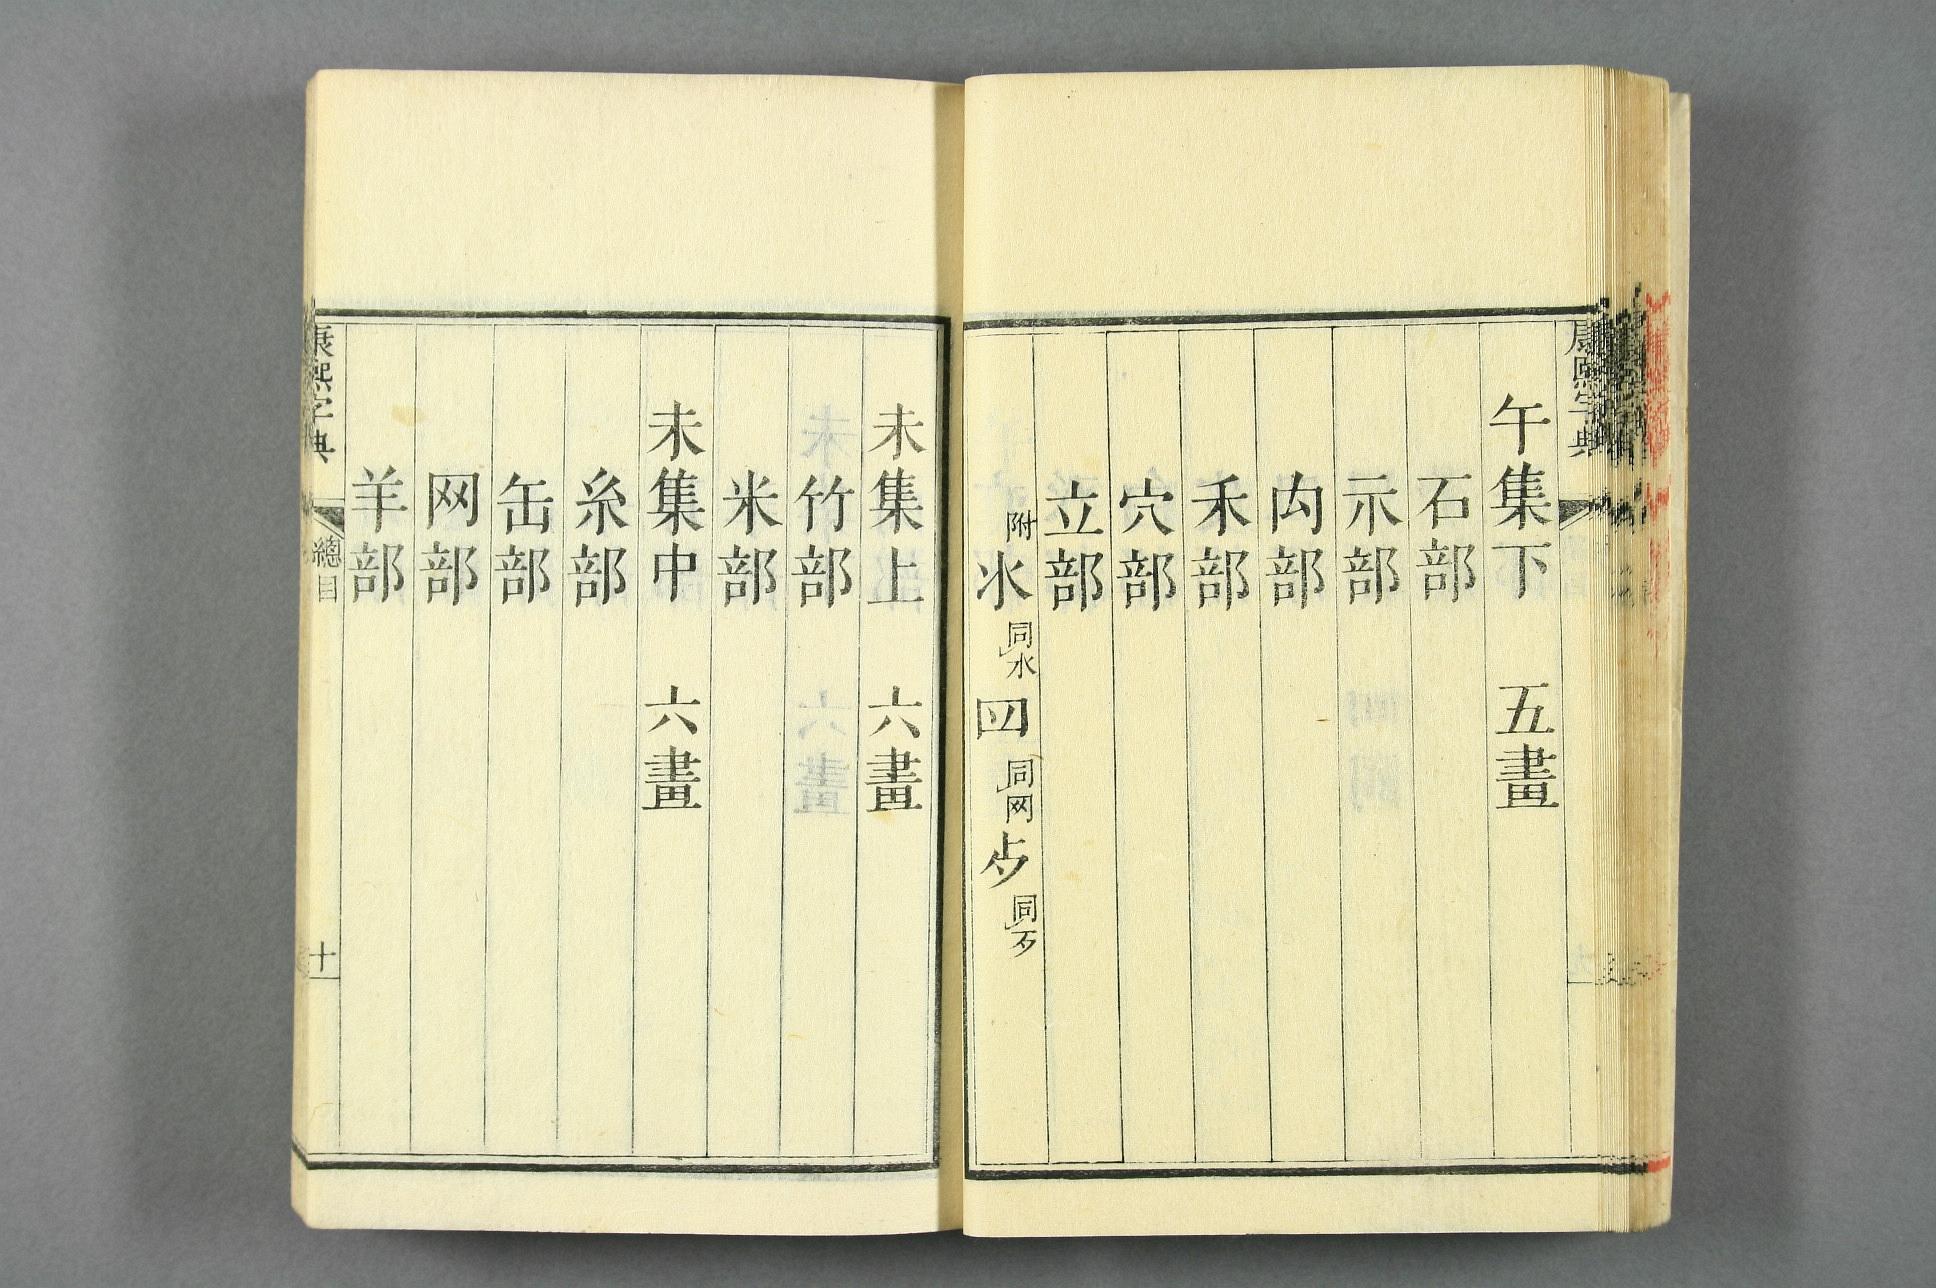 康熙字典
午集下 五畫
石部
示部
禸部
禾部
穴部
立部
附氺同水𦉰同网歺同歹
未集上 六畫
竹部
米部
未集中 六畫
糸部
缶部
网部
羊部
康熙字典 總目 十